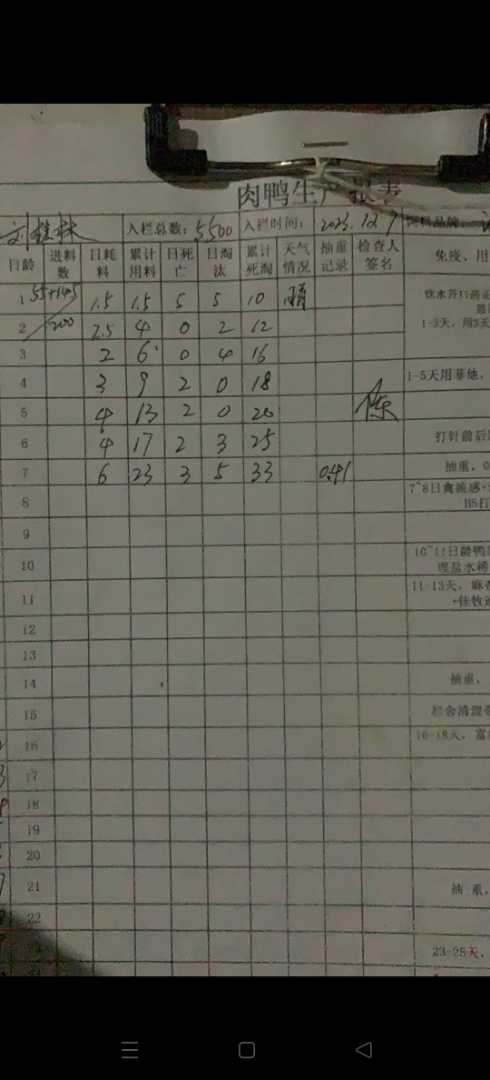 肉鸭生产报表
入栏总数: 5500 入栏时间: 2023.12.9 饲料品牌:
日龄 进料数 日耗料 累计用料 日死亡 日淘汰 累计死淘 天气情况 抽重记录 检查人签名 免疫、用
1 55+145 1.5 1.5 5 5 10 晴
2 200 2.5 4 0 2 12
1-3天，用3天
3 2 6 0 4 16
4 3 9 2 0 18 1-5天用
5 4 13 2 0 20 陈
6 4 17 2 3 25 打针前后
7 6 23 3 5 33 0.41 抽重，0
8 7~8日禽流感+
H5打
9
10 10~11日龄鸭
理盐水稀
11 11-13天，麻
12
13
14 抽重，
15 栏舍清理
16 16-18天，富
17
18
19
20
21 抽重，
22
23-28天，